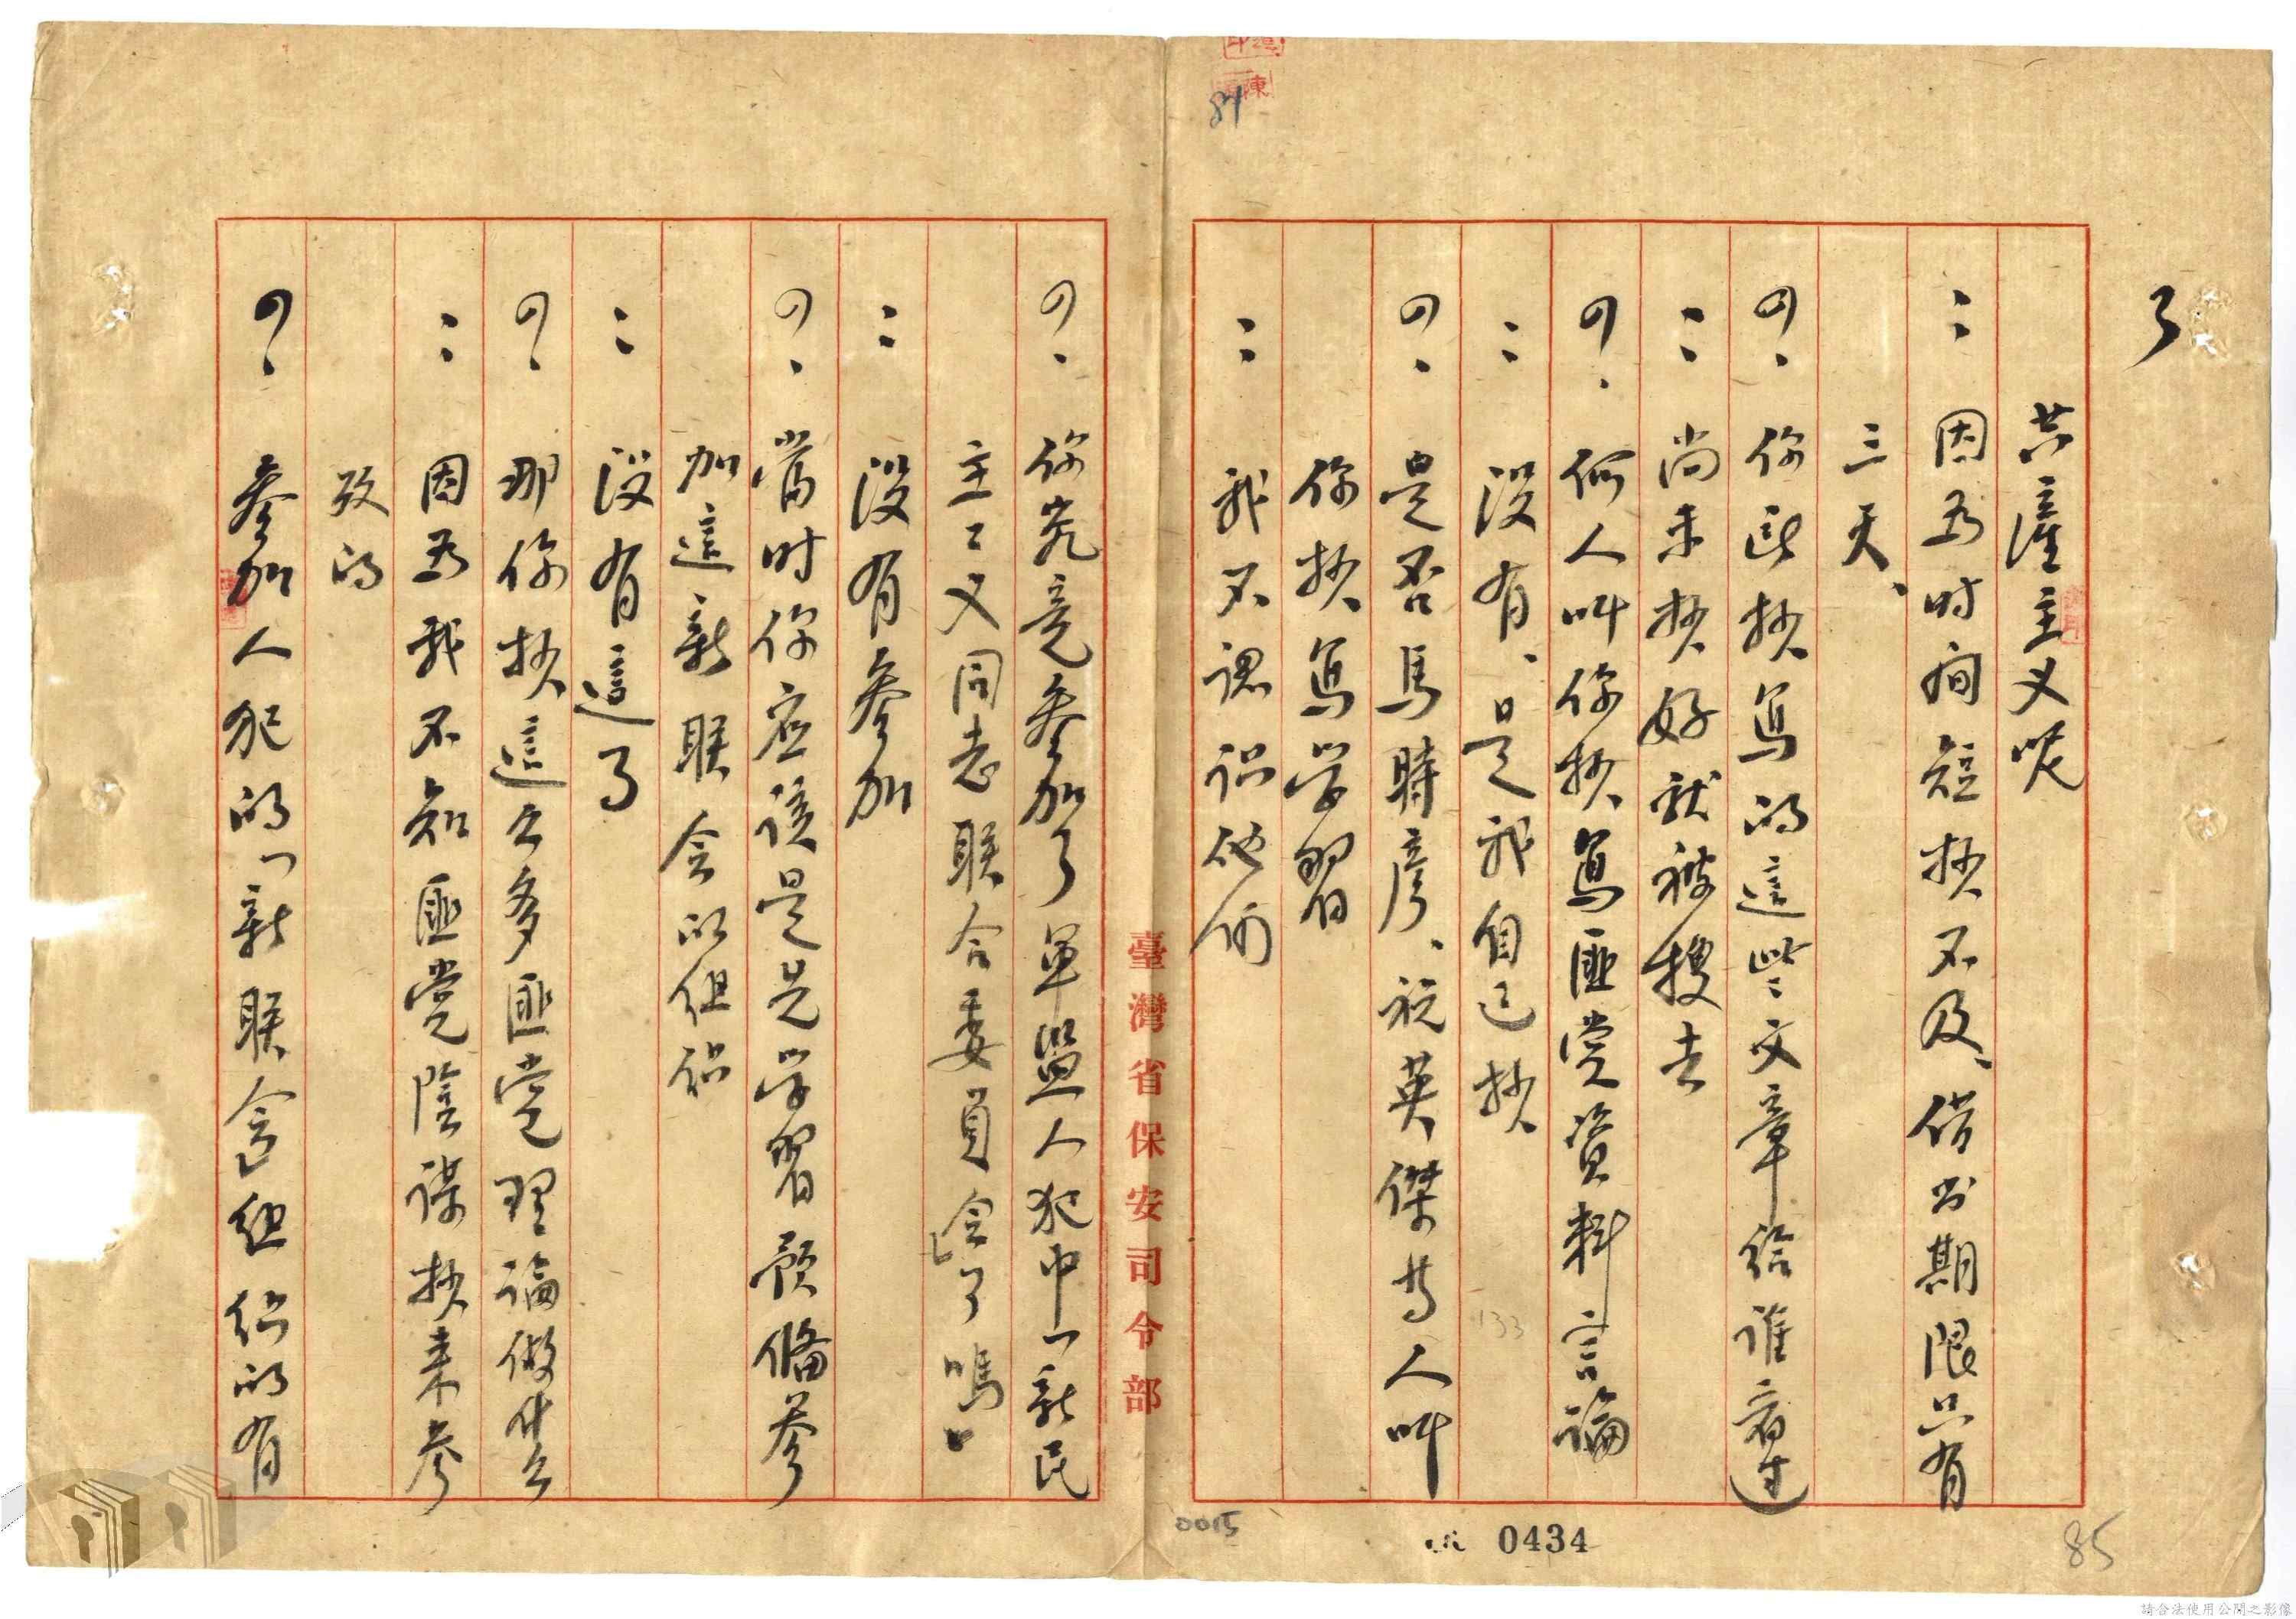 了
共產主义呢
：因為时间短抄不及、借书期限只有
三天、
問：你所抄寫的這些文章给谁看过
：尚未抄好就被搜去
問：何人叫你抄寫匪党資料言論
：没有、是我自己抄
問：是否馬時彦、祝英傑等人叫
你抄寫学習
：我不認识他们
臺灣省保安司令部
問：你究竟参加了軍监人犯中「新民
主主义同志联合委員会」了嗎
：没有参加
問：當时你应该是先学習预備参
加這新联会的组织
：没有這了
問：那你抄這么多匪党理論做什么
：因為我不知匪党陰謀抄来参
攷的
問：参加人犯的「新联会」组织的有
0434
0015
85
84
133
陳
請合法使用公開之影像